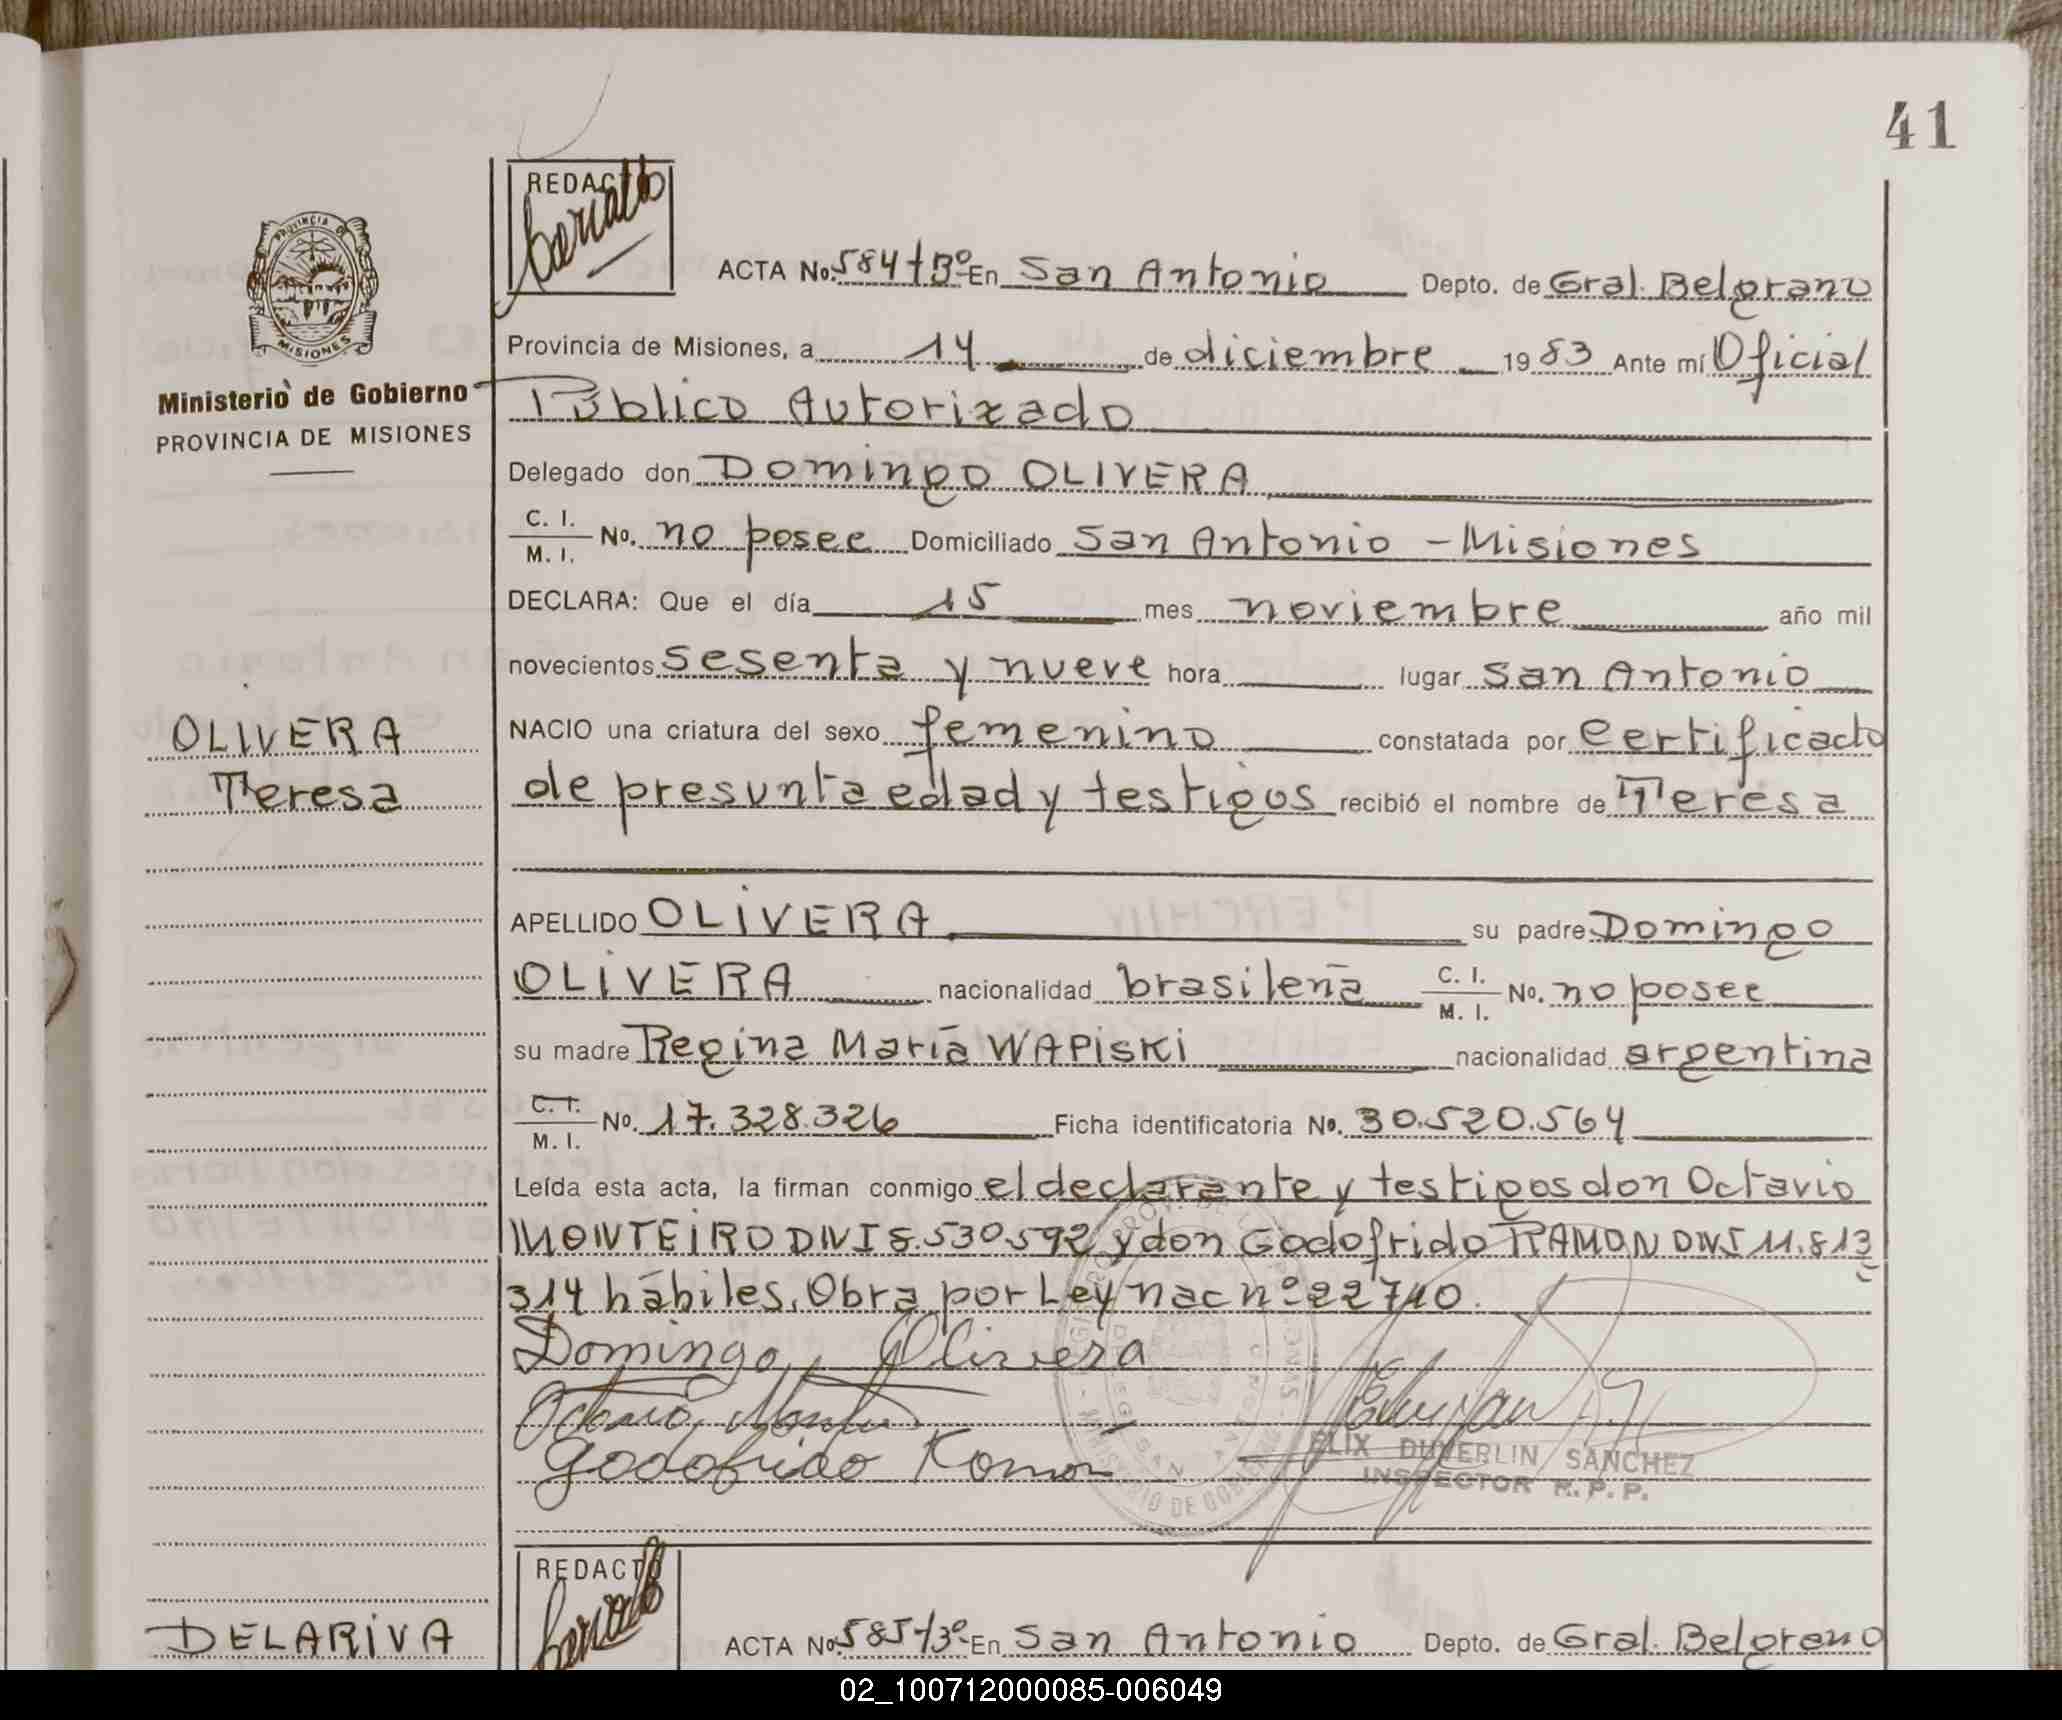 41
REDACTO
ACTA No. 584 t 3º En San Antonio Depto. de Gral. Belgrano
PROVINCIA DE
MISIONES
Provincia de Misiones, a 14 de diciembre 1983 Ante mí Oficial
Ministerio de Gobierno
Público Autorizado
PROVINCIA DE MISIONES
Delegado don Domingo OLIVERA
C. I.
M. I. No. no posee Domiciliado San Antonio - Misiones
DECLARA: Que el día 15 mes noviembre año mil
novecientos sesenta y nueve hora lugar San Antonio
OLIVERA
Teresa
NACIO una criatura del sexo femenino constatada por certificado
de presunta edad y testigos recibió el nombre de Teresa
APELLIDO OLIVERA su padre Domingo
OLIVERA nacionalidad brasileña C. I. M. I. No. no posee
su madre Regina María WAPISKI nacionalidad argentina
C. I.
M. I. No. 17.328.326 Ficha identificatoria No. 30.520.564
Leída esta acta, la firman conmigo el declarante y testigos don Octavio
MONTEIRO DNI 8.530.592 y don Godofrido RAMON DNI 11.813
314 hábiles. Obra por Ley nac nº 22740.
Domingo Olivera
Octavio
Godofrido Romon
FELIX DUVERLIN SANCHEZ
INSPECTOR R.P.P.
MINISTERIO DE GOBIERNO
REDACTO
DELARIVA
ACTA No. 585 t 3º En San Antonio Depto. de Gral. Belgrano
02_100712000085-006049